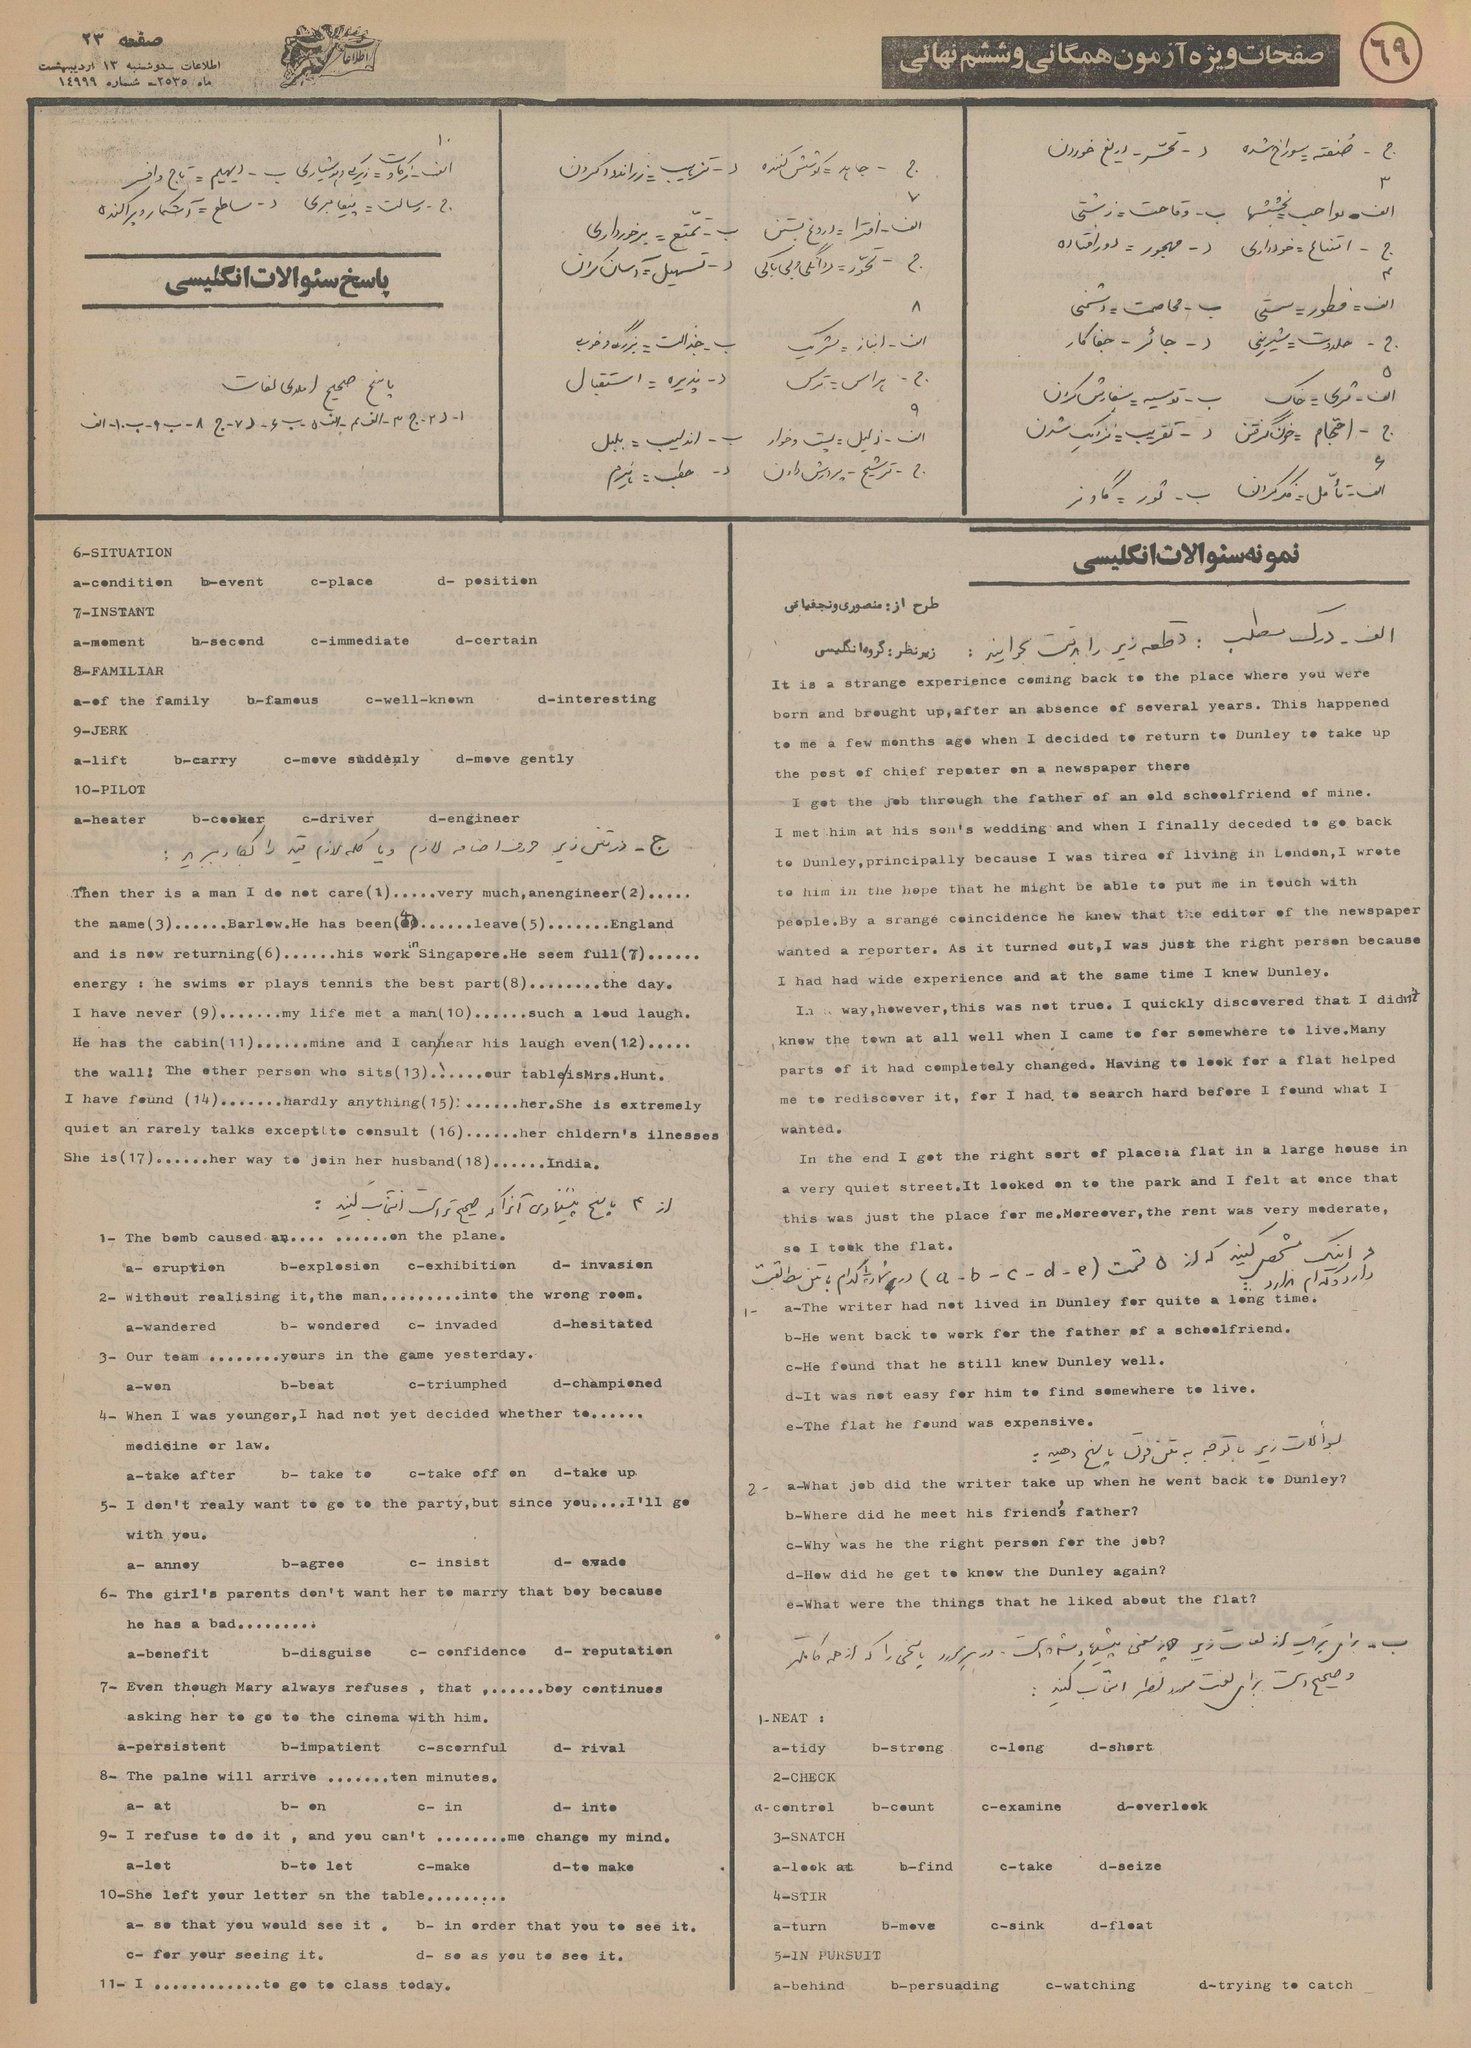 ۶۹
صفحات ویژه آزمون همگانی و ششم نهائی
اطلاعات
صفحه ۲۳
اطلاعات سه‌شنبه ۱۳ اردیبهشت
ماه ۲۵۳۵ـ شماره ۱۴۹۹۹
ج - سوراخ شده د - تحسّر - دریغ خوردن
۳
الف - مواجب = بخششها ب - وقاحت = زشتی
ج - امتناع = خودداری د - مهجور = دورافتاده
۴
الف = فطور = سستی ب - مخاصمت = دشمنی
ج - حلاوت = شیرینی د - جائر - جفاکار
۵
الف - ثری = خاک ب - توصیه = سفارش کردن
ج - احتجام = خون گرفتن د - تقریب = نزدیک شدن
۶
الف - تأمّل = فکر کردن ب - ثور = گاو نر
ج - جاهد = کوشش کننده د - تذهیب = زراندود کردن
۷
الف - افترا = دروغ بستن ب - تمتّع = برخورداری
ج - تهوّر = بی باکی د - تسهیل = آسان کردن
۸
الف - انباز = شریک ب - جزالت = بزرگ
ج - هراس = ترس د - پذیره = استقبال
۹
الف - ذلیل = پست و خوار ب - اندلیب = بلبل
ج - ترشیح - پرورش دادن د - حطب = هیزم
۱۰
الف - ذکاوت = زیرکی و هوشیاری ب - دیهیم = تاج و افسر
ج - رسالت = پیغامبری د - ساطع = آشکار و پراکنده
پاسخ سئوالات انگلیسی
پاسخ صحیح املای لغات
۱ - د ۲ - ج ۳ - الف ۴ - الف ۵ - ب ۶ - د ۷ - ج ۸ - ب ۹ - ب ۱۰ - الف
نمونه سئوالات انگلیسی
طرح از: منصوری و نجفیانی
زیرنظر: گروه انگلیسی
الف - درک مطلب : قطعه زیر را بدقت بخوانید :
It is a strange experience coming back to the place where you were
born and brought up,after an absence of several years. This happened
to me a few months ago when I decided to return to Dunley to take up
the post of chief repoter on a newspaper there
I got the job through the father of an old schoolfriend of mine.
I met him at his son's wedding and when I finally deceded to go back
to Dunley,principally because I was tired of living in London,I wrote
to him in the hope that he might be able to put me in touch with
people.By a srange coincidence he knew that the editor of the newspaper
wanted a reporter. As it turned out,I was just the right person because
I had had wide experience and at the same time I knew Dunley.
In a way,however,this was not true. I quickly discovered that I didn't
know the town at all well when I came to for somewhere to live.Many
parts of it had completely changed. Having to look for a flat helped
me to rediscover it, for I had to search hard before I found what I
wanted.
In the end I got the right sort of place:a flat in a large house in
a very quiet street.It looked on to the park and I felt at once that
this was just the place for me.Moreover,the rent was very moderate,
so I took the flat.
مشخص کنید که از ۵ قسمت (a - b - c - d - e)
1- a-The writer had not lived in Dunley for quite a long time.
b-He went back to work for the father of a schoolfriend.
c-He found that he still knew Dunley well.
d-It was not easy for him to find somewhere to live.
e-The flat he found was expensive.
سؤالات زیر با توجه به متن فوق پاسخ دهید :
2- a-What job did the writer take up when he went back to Dunley?
b-Where did he meet his friend's father?
c-Why was he the right person for the job?
d-How did he get to know the Dunley again?
e-What were the things that he liked about the flat?
ب - برای هریک از لغات زیر چهار معنی پیشنهاد شده است
برای لغت مورد نظر انتخاب کنید :
1-NEAT :
a-tidy b-strong c-long d-short
2-CHECK
a-control b-count c-examine d-overlook
3-SNATCH
a-look at b-find c-take d-seize
4-STIR
a-turn b-move c-sink d-float
5-IN PURSUIT
a-behind b-persuading c-watching d-trying to catch
6-SITUATION
a-condition b-event c-place d- position
7-INSTANT
a-moment b-second c-immediate d-certain
8-FAMILIAR
a-of the family b-famous c-well-known d-interesting
9-JERK
a-lift b-carry c-move suddenly d-move gently
10-PILOT
a-heater b-cooker c-driver d-engineer
ج - در متن زیر حرف اضافه لازم و یا کلمه لازم قید را بکار ببرید :
Then ther is a man I do not care(1).....very much,anengineer(2).....
the name(3)......Barlow.He has been(4)......leave(5).......England
and is now returning(6)......his work in Singapore.He seem full(7)......
energy : he swims or plays tennis the best part(8)........the day.
I have never (9).......my life met a man(10)......such a loud laugh.
He has the cabin(11)......mine and I can/hear his laugh even(12).....
the wall! The other person who sits(13).......our table/isMrs.Hunt.
I have found (14).......hardly anything(15).......her.She is extremely
quiet an rarely talks except to consult (16)......her chldern's ilnesses
She is(17)......her way to join her husband(18)......India.
از ۴ پاسخ پیشنهادی آنرا که صحیح تر است انتخاب کنید :
1- The bomb caused an.... ......on the plane.
a- eruption b-explosion c-exhibition d- invasion
2- Without realising it,the man.........into the wrong room.
a-wandered b- wondered c- invaded d-hesitated
3- Our team ........yours in the game yesterday.
a-won b-beat c-triumphed d-championed
4- When I was younger,I had not yet decided whether to......
medicine or law.
a-take after b- take to c-take off on d-take up
5- I don't realy want to go to the party,but since you....I'll go
with you.
a- annoy b-agree c- insist d- evade
6- The girl's parents don't want her to marry that boy because
he has a bad.........
a-benefit b-disguise c- confidence d- reputation
7- Even though Mary always refuses , that ,.......boy continues
asking her to go to the cinema with him.
a-persistent b-impatient c-scornful d- rival
8- The palne will arrive .......ten minutes.
a- at b- on c- in d- into
9- I refuse to do it , and you can't ........me change my mind.
a-let b-to let c-make d-to make
10-She left your letter on the table.........
a- so that you would see it . b- in order that you to see it.
c- for your seeing it. d- so as you to see it.
11- I ............to go to class today.